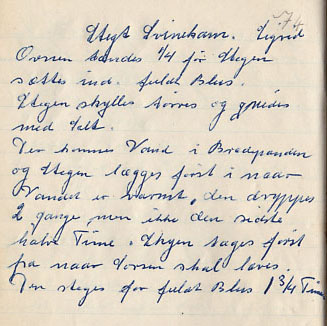 74
Stegt Svinekam. Sigrid
Ovnen tændes 1/4 før Stegen
sættes ind. fuldt Blus.
Stegen skylles tørres og gnides
med Salt.
Der kommes Vand i Bradepanden
og Stegen lægges først i naar
Vandet er varmt, den dryppes
2 gange men ikke den sidste
halve Time. Stegen tages først
fra naar Sovsen skal laves.
Den steges for fuldt Blus 1 3/4 Time